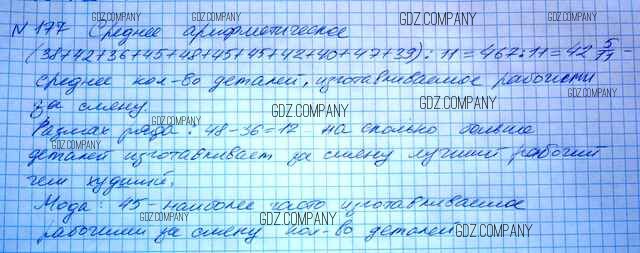 GDZ.COMPANY GDZ.COMPANY
N 177 Среднее арифметическое GDZ.COMPANY
(38+42+36+45+48+45+45+42+40+47+39) : 11 = 467 : 11 = 42 5/11 -
среднее кол-во деталей, изготавливаемое рабочими
за смену GDZ.COMPANY GDZ.COMPANY GDZ.COMPANY
Размах ряда : 48-36=12 на сколько больше
GDZ.COMPANY GDZ.COMPANY
деталей изготавливает за смену лучший рабочий
чем худший. GDZ.COMPANY
Мода : 45 - наиболее часто изготавливаемое
GDZ.COMPANY GDZ.COMPANY
рабочими за смену кол-во деталей GDZ.COMPANY